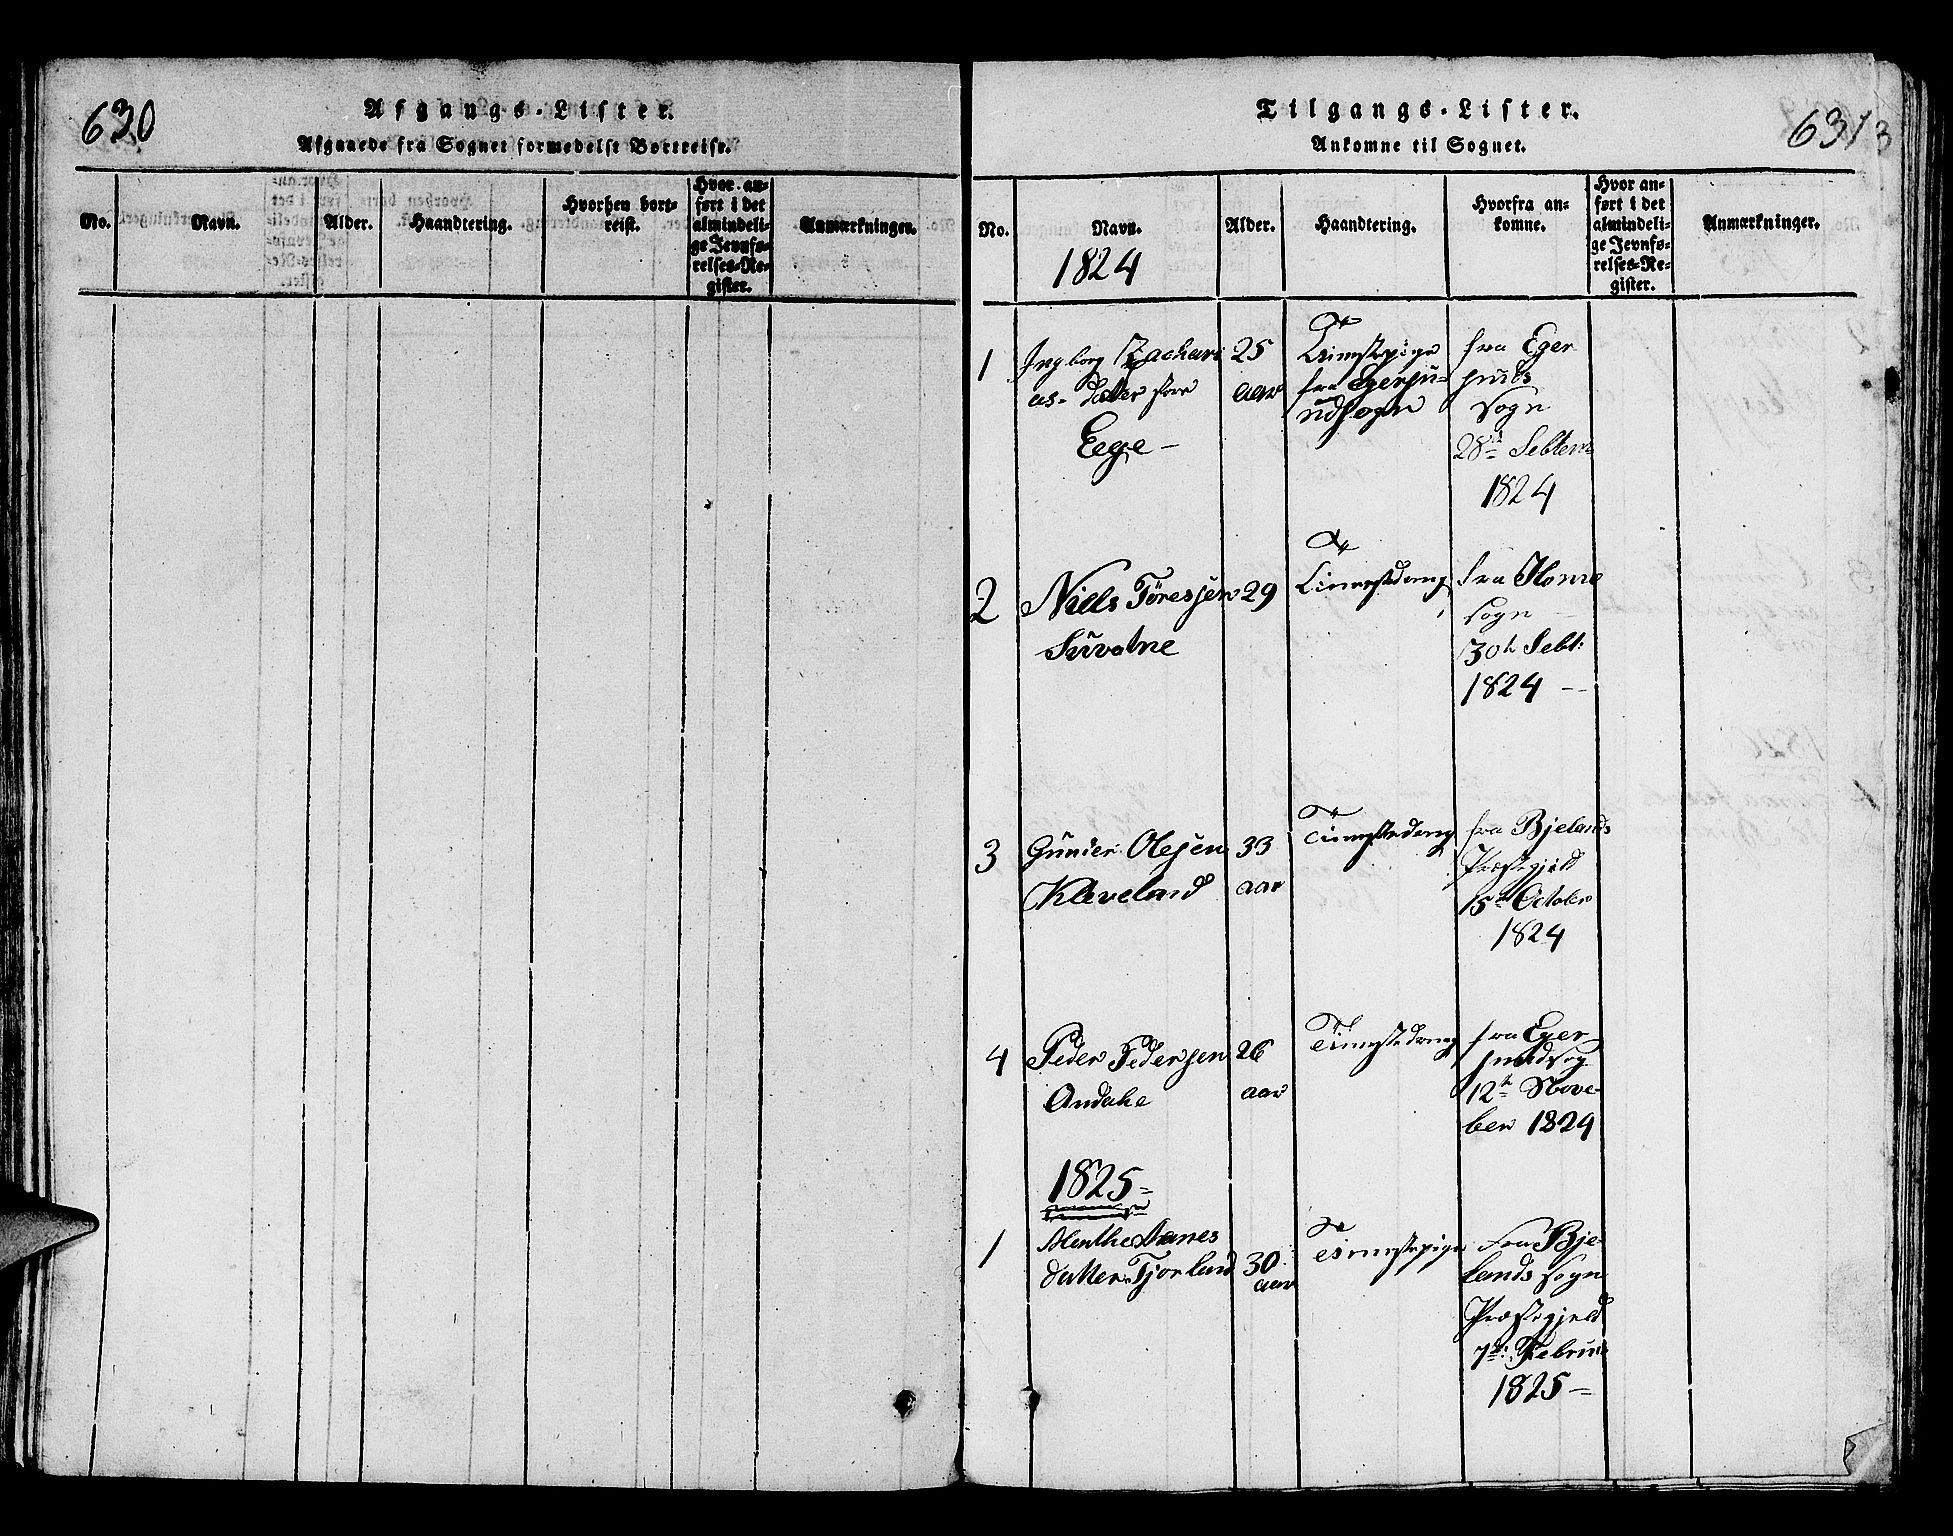 630
Afgangs-Lister.
Afgaaede fra Sognet formedelst Bortreise.
No.
Navn.
Alder.
Haandtering.
Hvorhen bort-
reist.
Hvor an-
ført i det
almindeli-
ge Jevnfø-
relses-Re-
gister.
Anmærkninger.
Tilgangs-Lister.
Ankomne til Sognet.
631
3
No.
Navn.
Alder.
Haandtering.
Hvorfra an-
komne.
Hvor an-
ført i det
almindeli-
ge Jevnfø-
relses-Re-
gister.
Anmærkninger.
1824
1
Ingborg Zachari
as-datter store
Eege -
25
aar
fra Egersu-
udsogn
fra Eger
sunds
sogn
28de Sebtem
1824
2
Niels Tøresen
Süvatne
29
fra Home
sogn
30te Sebt:
1824 -
3
Gunder Olesen
Kleveland
33
aar
fra Bjelands
Præstegjeld
15de October
1824
4
Peder Pedersen
Andahe
26
aar
fra Eger
sundsog
12te Nove-
ber 1824
1825
1
Menthe
datter Tjorland
30
aar
fra Bje-
lands sogn
Præstegjeld
7de Februar
1825 -